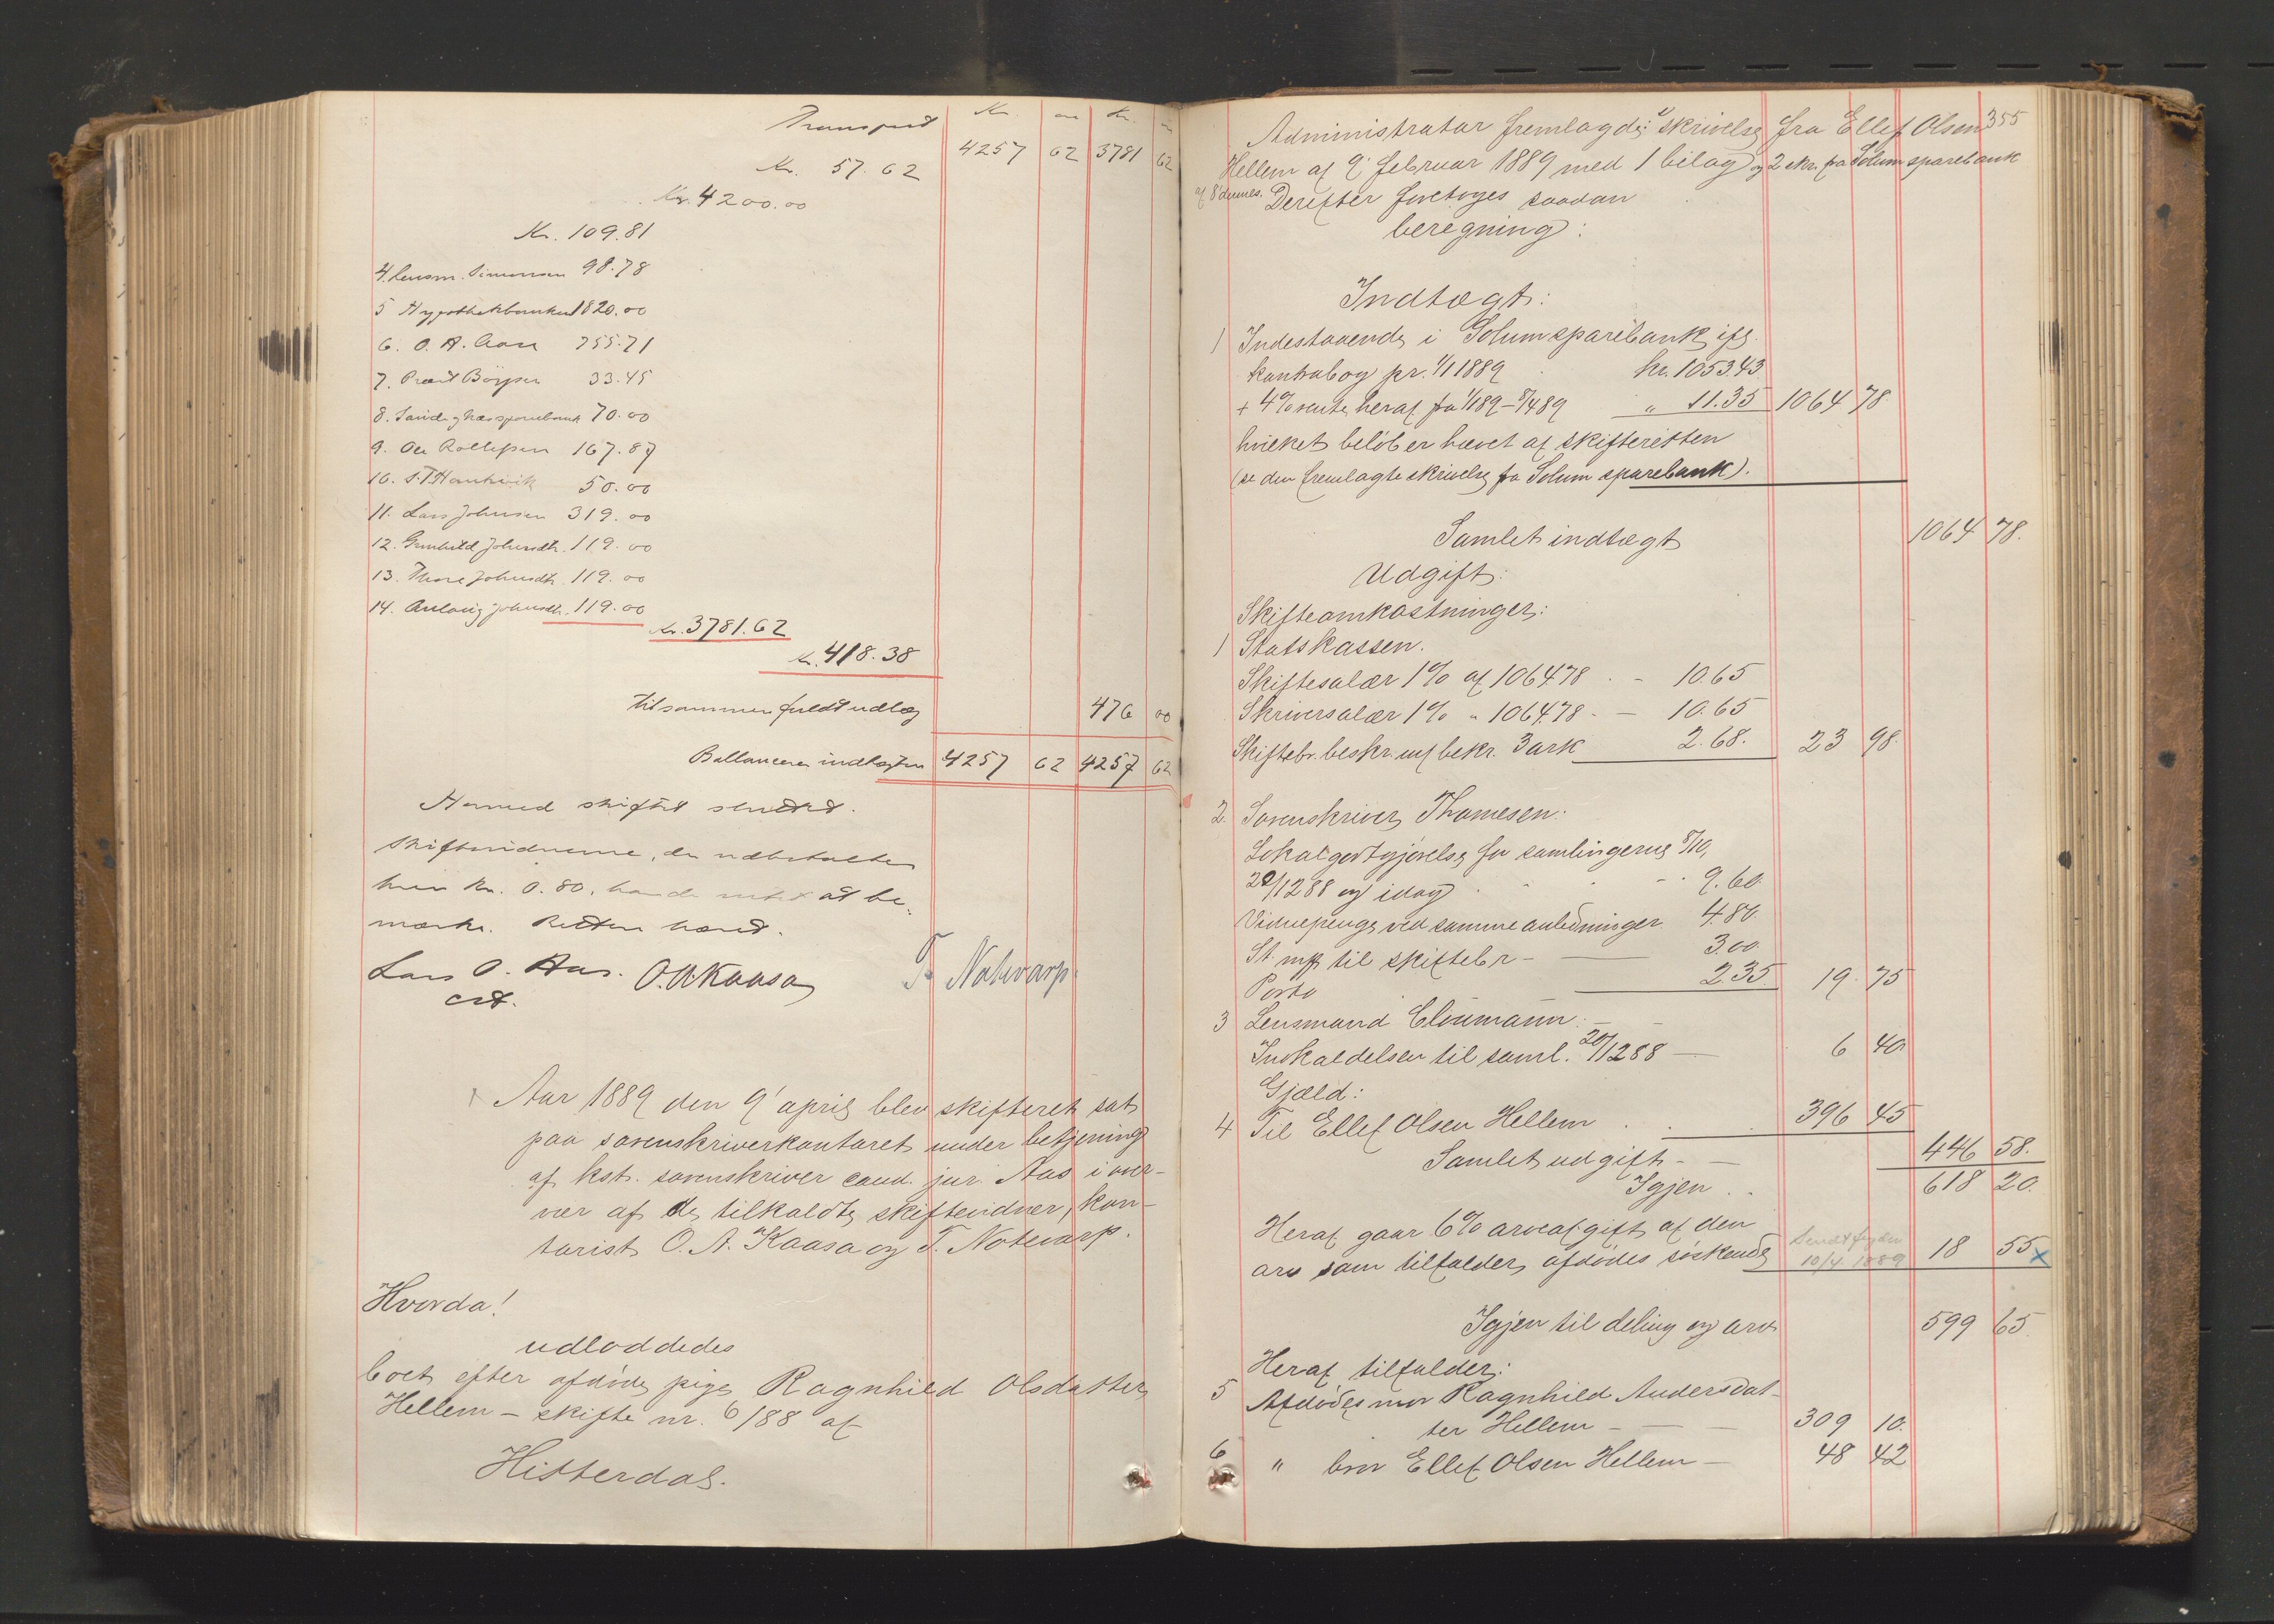 Transport
Kr. øre Kr. ø
4257 62 3781 62
Kr. 57.62
Kr. 4200.00
Kr. 109.81
4. Lensm. Simonsen 98.78
5 Hypothekbanken 1820.00
6. O. A. Aase 755.71
7. Præst Börresen 33.45
8. Saude og Næs sparebank 70.00
9. Ole Rollefsen 167.87
10. 50.00
11. Lars Johnsen 319.00
12. Gunhild Johnsdtr. 119.00
13. Thore Johnsdtr. 119.00
14. Aslaug Johnsdtr. 119.00
Kr. 3781.62
Kr. 418.38
tilsammen fuldt udlæg 476 00
Ballancerer indtægten 4257 62 4257 62
Hermed skiftet sluttet.
Skiftevidnerne, der udbetaltes
hver Kr. 0.80, havde intet at be-
mærke. Retten hævet.
Lars O. Aas. O. A. Kaasa T. Notevarp
cst.
Aar 1889 den 9' april blev skifteret sat
paa sorenskriverkontoret under betjening
af kst. sorenskriver cand. jur. Aas i over-
vær af de tilkaldte skiftevidner, kon-
torist O. A. Kaasa og T. Notevarp.
Hvorda!
udloddedes
boet efter afdøde pige Ragnhild Olsdatter
Hellem – skifte nr. 6/88 af
Hitterdal.
355
Administrator fremlagde: 1 skrivelse fra Ellef Olsen
Hellem af 9' februar 1889 med 1 bilag og 2 skr. fra Solum sparebank
af 8' dennes. Derefter foretoges saadan
beregning:
Indtægt:
1 Indestaaende i Solum sparebank ifg.
kontrabog pr. 1/1 1889 kr. 1053.43
+ 4% rente heraf fra 1/1 89 – 8/4 89 " 11.35 1064 78
hvilket beløb er hævet af skifteretten
(se den fremlagte skrivelse fra Solum sparebank).
Samlet indtægt 1064 78.
Udgift:
Skifteomkostninger:
1 Statskassen.
Skiftesalær 1% af 1064.78 - 10.65
Skriversalær 1% " 1064.78 - 10.65
Skiftebr. beskr. uf bekr. 3 ark 2.68. 23 98.
2. Sorenskriver Thomesen:
Lokalgodtgjørelse for samlingerne 8/10,
20/12 88 og idag 9.60.
Vidnepenge ved samme anledninger 4.80.
St. mp til skiftebr – 3.00.
Porto 2.35. 19 75
3 Lensmand Cloumann. –
Indkaldelsen til saml. 20/12 88 – 6 40
Gjæld:
4 Til Ellef Olsen Hellem 396 45
Samlet udgift – 446 58.
Igjen 618 20.
Heraf gaar 6% arveafgift af den
arv som tilfalder afdødes søskende 18 55 x
10/4 1889
Igjen til deling og arv 599 65.
Heraf tilfalder:
5 Afdødes mor Ragnhild Andersdat-
ter Hellem – 309 10.
6 " bror Ellef Olsen Hellem – 48 42